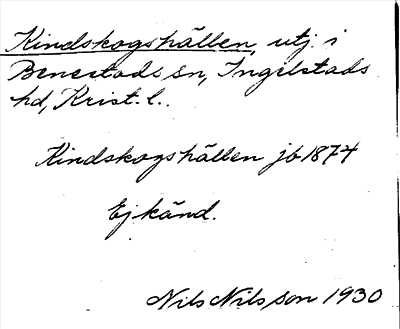 Kindskogshällen, utj. i
Benestads sn, Ingelstads
hd, Krist. l.
Kindskogshällen jb 1874
Ej känd.
Nils Nilsson 1930